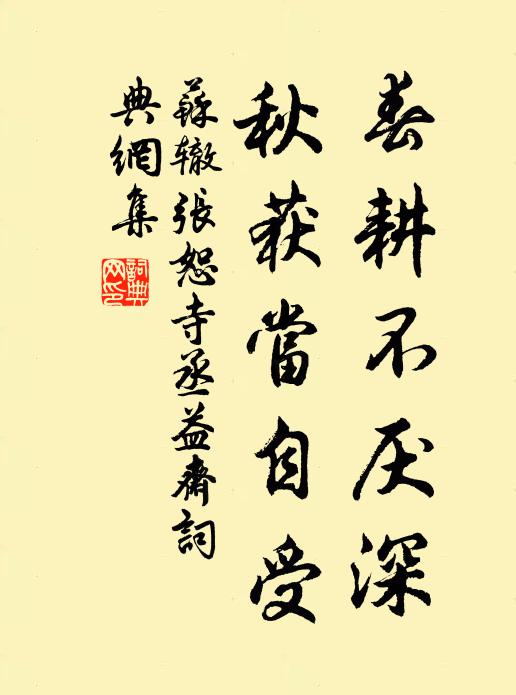 春耕不厌深
秋获當自受
蘇辙張恕寺丞益齋詞
典網集
詞典网印